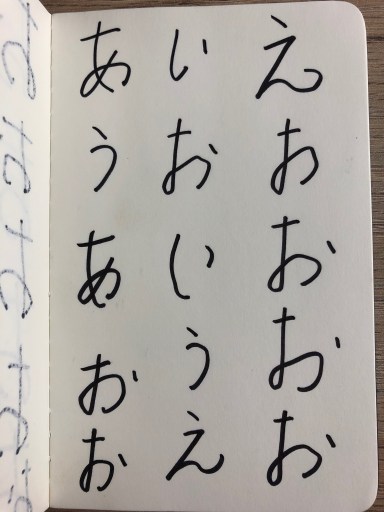 あ い え
う お お
あ い お
お う お
お え お